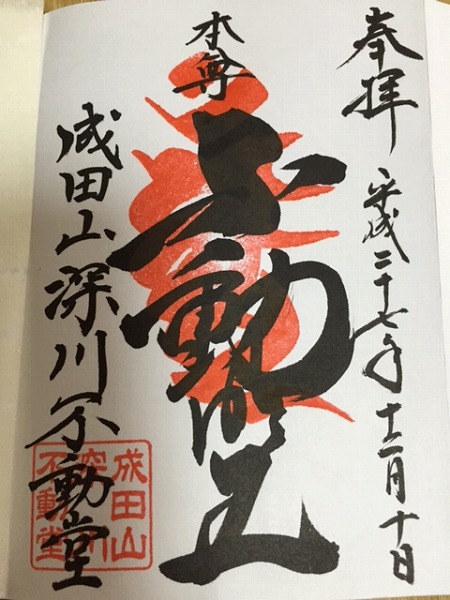 奉拝 平成二十七年十二月十日
本尊
不動明王
成田山深川不動堂
成田山
深川
不動堂